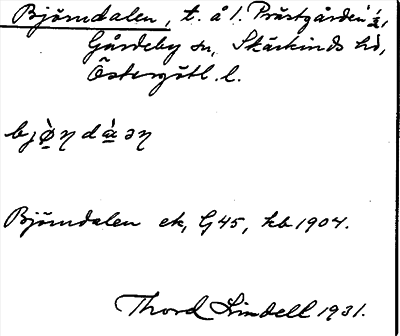 Björndalen, t. å l. Prästgården 1/2,
Gårdeby sn, Skärkinds hd,
Östergötl. l.
bjø̀ηdàəη
Björndalen ek, G45, kb 1904.
Thord Lindell 1931.